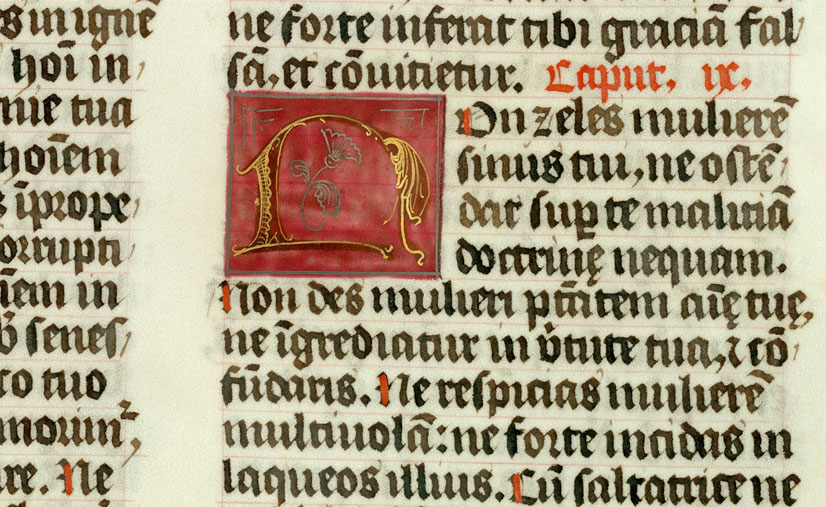 s in ignē
hoī in,
nie tua
hoīem
s īprope,
orrupti
iem in
senes,
co tuo
morum,
re. Ne
ne forte inferat tibi gratiā fal
sā, et cōuitietur. Caput. ix.
NOn zeles mulierē
sinus tui, ne ostē,
dat sup̱ te malitiā
doctrinę nequam.
Non des mulieri ptātem aīę tuę,
ne īgrediatur in v̄tute tua, ⁊ cō,
fūdaris. Ne respicias mulierē
multiuolā: ne forte incidas in
laqueos illius. Cū saltatrice ne